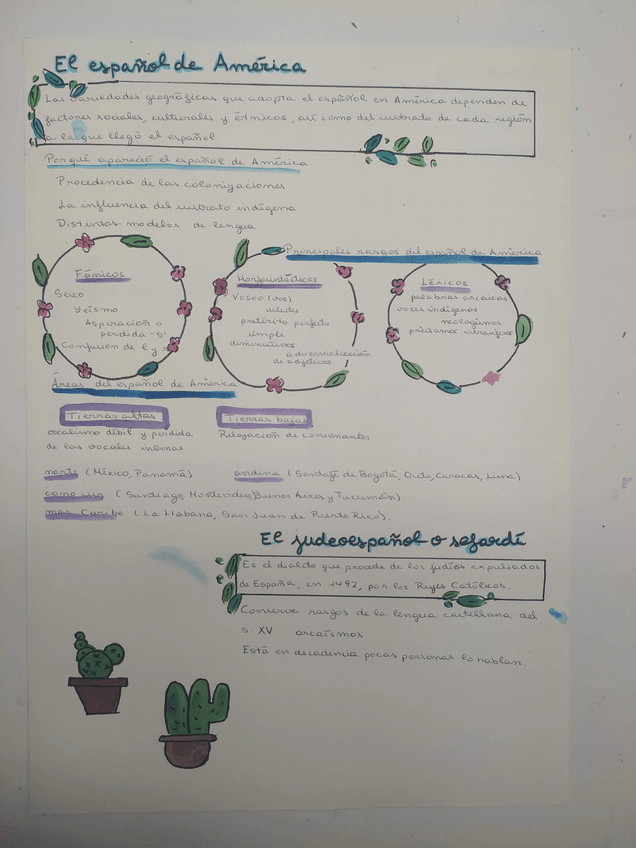 El español de América
Las variedades geográficas que adopta el español en América dependen de
factores sociales, culturales y étnicos, así como del sustrato de cada región
a la que llegó el español.
Por qué apareció el español de América
Procedencia de las colonizaciones
La influencia del sustrato indígena
Distintos modelos de lengua
Principales rasgos del español de América
Fónicos
Seseo
Yeísmo
Aspiración o
perdida "s"
Confusión de l y r
Morfosintácticos
Voseo (vos)
ustedes
pretérito perfecto
simple
diminutivos
adverbialización
de adjetivos
Léxicos
palabras arcaicas
voces indígenas
neologismos
préstamos extranjeros
Áreas del español de América
Tierras altas
vocalismo débil y perdida
de las vocales internas
Tierras bajas
Relajación de consonantes
norte (México, Panamá)
andina (Santafé de Bogotá, Quito, Caracas, Lima)
cono sur (Santiago, Montevideo, Buenos Aires y Tucumán)
mar Caribe (La Habana, San Juan de Puerto Rico).
El judeoespañol o sefardí
Es el dialcto que procede de los judíos expulsados
de España, en 1492, por los Reyes Católicos.
Conserva rasgos de la lengua castellana del
s. XV arcaísmos
Está en decadencia pocas personas lo hablan.